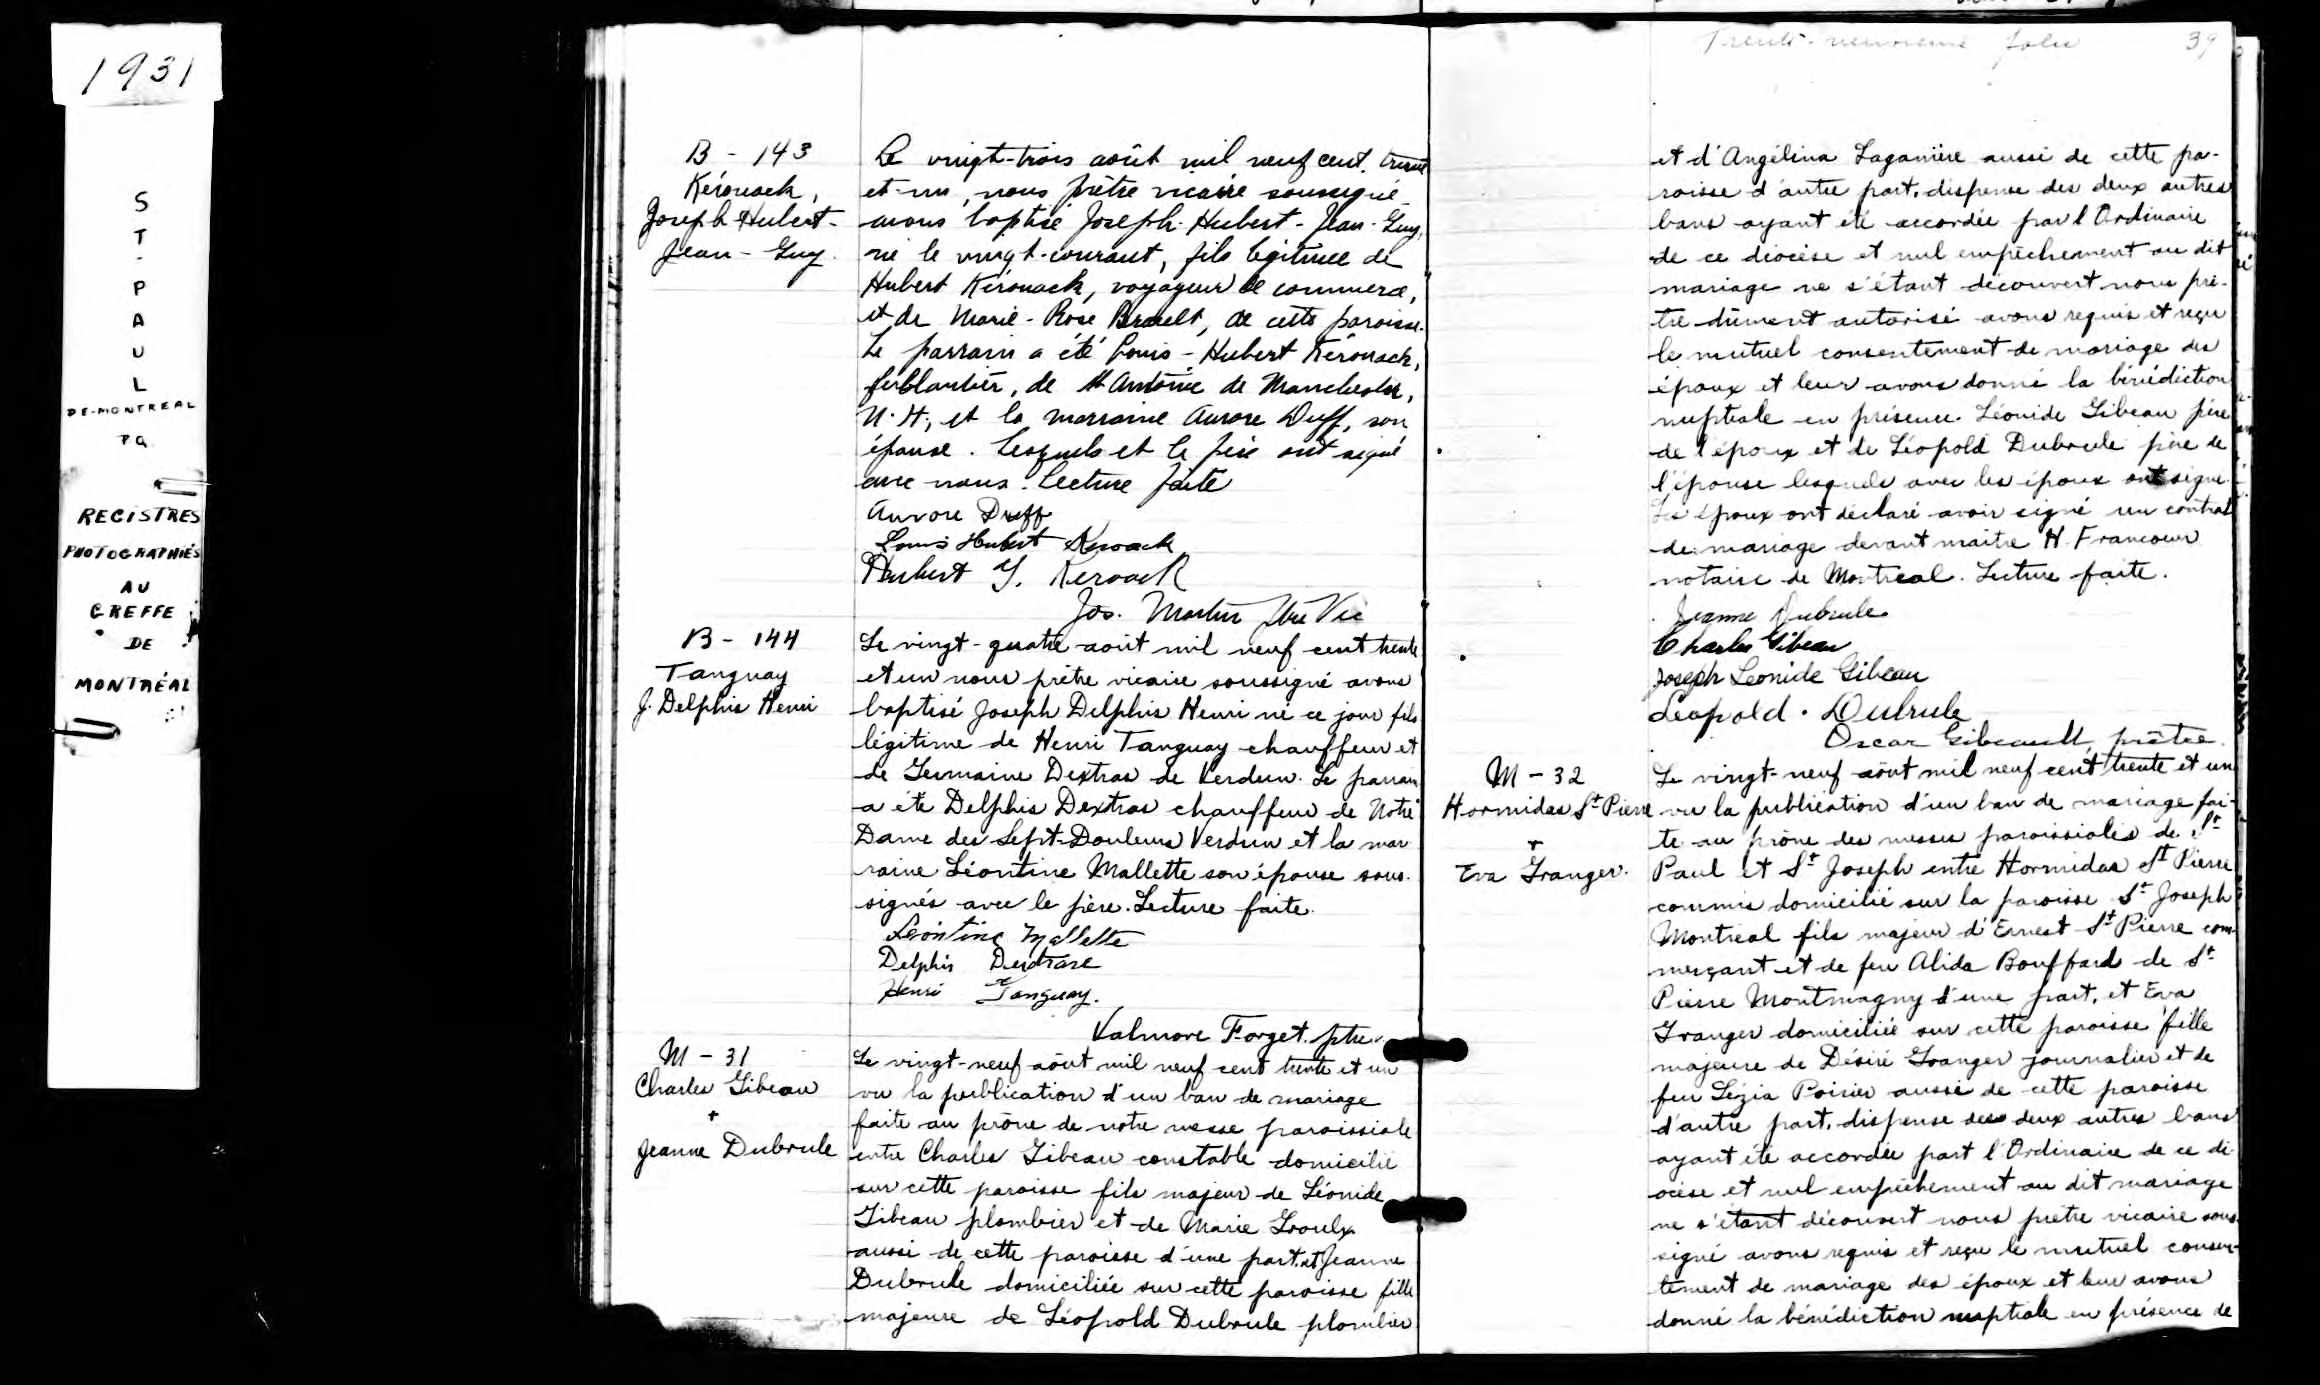 1931
ST. PAUL
DE-MONTREAL
P.Q.
REGISTRES
PHOTOGRAPHIÉS
AU
GREFFE
DE
MONTRÉAL
B - 143
Kérouack,
Joseph Hubert-
Jean - Guy.
Le vingt-trois août mil neuf cent trente
et-un, nous prêtre vicaire soussigné
avons baptisé Joseph-Hubert-Jean-Guy,
né le vingt-courant, fils légitime de
Hubert Kérouack, voyageur de commerce,
et de Marie-Rose Brault, de cette paroisse.
Le parrain a été Louis-Hubert Kérouack,
ferblantier, de St Antoine de Manchester,
N.H., et la marraine Aurore Duff, son
épouse. Lesquels et le père ont signé
avec nous. Lecture faite
Aurore Duff
Louis Hubert Kerouack
Hubert Kerouack
Jos. Martin Ptre Vic
B - 144
Tanguay
J. Delphis Henri
Le vingt-quatre août mil neuf cent trente
et un nous prêtre vicaire soussigné avons
baptisé Joseph Delphis Henri né ce jour fils
légitime de Henri Tanguay chauffeur et
de Germaine Dextras de Verdun. Le parrain
a été Delphis Dextras chauffeur de Notre
Dame des Sept-Douleurs Verdun et la mar
raine Léontine Mallette son épouse sous-
signés avec le père. Lecture faite.
Léontine Mallette
Delphis Dextrase
Henri Tanguay.
Valmore Forget. ptre.
M - 31
Charles Gibeau
+
Jeanne Dubrule
Le vingt-neuf août mil neuf cent trente et un
vu la publication d'un ban de mariage
faite au prône de notre messe paroissiale
entre Charles Gibeau constable domicilié
sur cette paroisse fils majeur de Léonide
Gibeau plombier et de Marie Groulx
aussi de cette paroisse d'une part, et Jeanne
Dubrule domiciliée sur cette paroisse fille
majeure de Léopold Dubrule plombier
Trente-neuvième folio 39
et d'Angélina Laganière aussi de cette pa-
roisse d'autre part, dispense des deux autres
bans ayant été accordée par l'Ordinaire
de ce diocèse et nul empêchement au dit
mariage ne s'étant découvert nous prê-
tre dûment autorisé avons requis et reçu
le mutuel consentement de mariage des
époux et leur avons donné la bénédiction
nuptiale en présence Léonide Gibeau père
de l'époux et de Léopold Dubrule père de
l'épouse lesquels avec les époux ont signé.
Les époux ont déclaré avoir signé un contrat
de mariage devant maître H. Francoeur
notaire de Montréal. Lecture faite.
Jeanne Dubrule
Charles Gibeau
Joseph Leonide Gibeau
Léopold. Dubrule
Oscar Gibeault, prêtre.
M - 32
Hormidas St Pierre
+
Eva Granger.
Le vingt-neuf août mil neuf cent trente et un
vu la publication d'un ban de mariage fai-
te au prône des messes paroissiales de St
Paul et St Joseph entre Hormidas St Pierre
commis domicilié sur la paroisse St Joseph
Montreal fils majeur d'Ernest St Pierre com-
merçant et de feu Alida Bouffard de St
Pierre Montmagny d'une part, et Eva
Granger domiciliée sur cette paroisse fille
majeure de Désiré Granger journalier et de
feu Lézia Poirier aussi de cette paroisse
d'autre part, dispense des deux autres bans
ayant été accordée part l'Ordinaire de ce di
ocèse et nul empêchement au dit mariage
ne s'étant découvert nous prêtre vicaire sous-
signé avons requis et reçu le mutuel consen-
tement de mariage des époux et leur avons
donné la bénédiction nuptiale en présence de